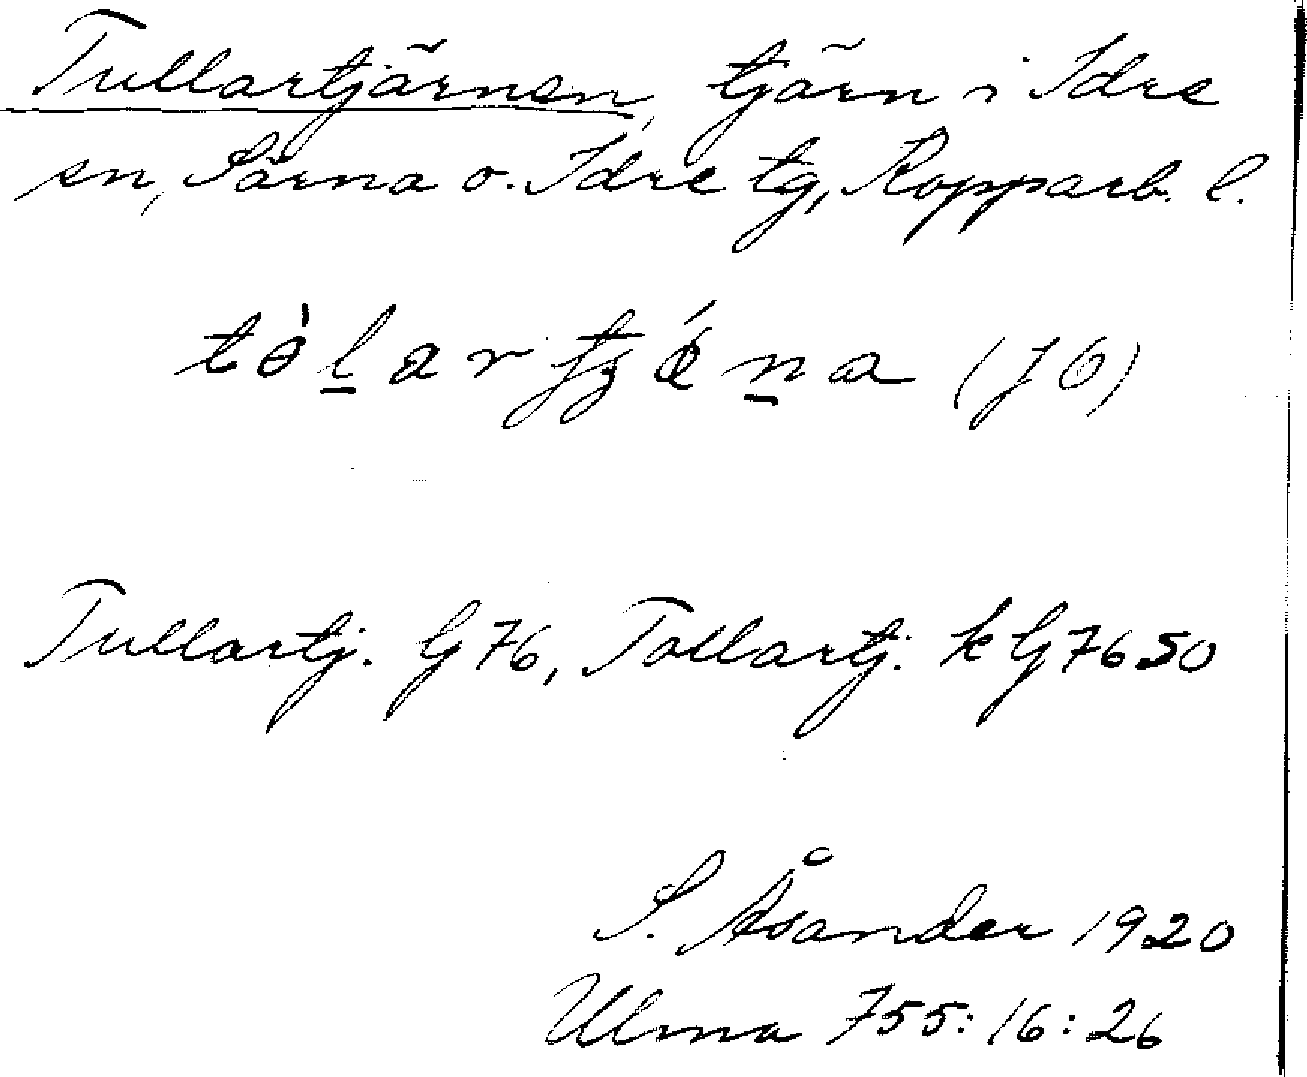 Tullartjärnen, tjärn i Idre
sn, Särna o. Idre tg, Kopparb. l.
tòḻar
Tullartj. G 76, Tollartj. k G 76 50
S. Åsander 1920
Ulma 755:16:26